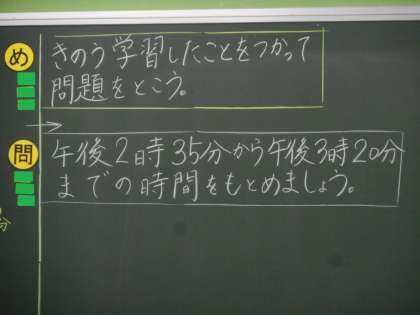 め
きのう学習したことをつかって
問題をとこう。
問
午後2時35分から午後3時20分
までの時間をもとめましょう。
分